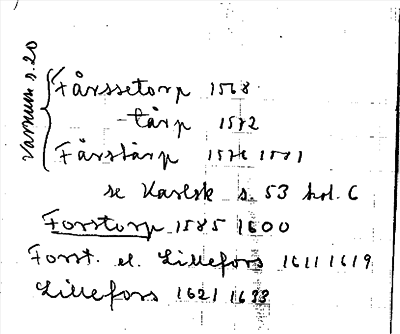 Varnum s. 20
Fårssetorp 1568
-tårp 1572
Fårstårp 1576 1581
se Karlsk s. 53 kol. C
Forstorp 1585 1600
Forst. el. Lillefors 1611 1619
Lillefors 1621 1633